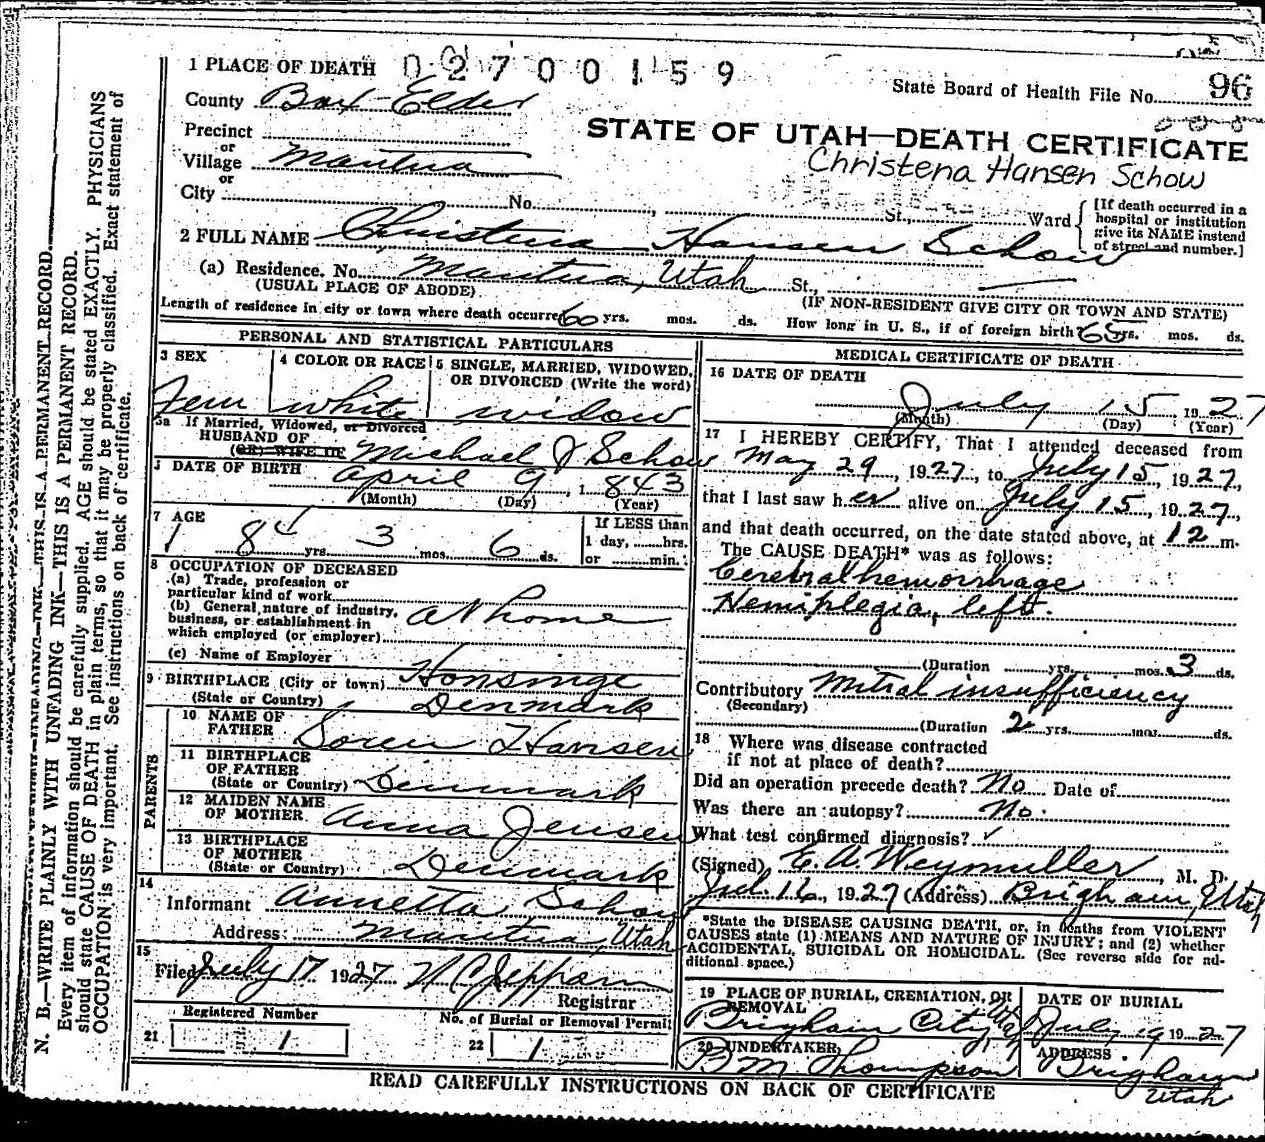 1 PLACE OF DEATH 02700159
State Board of Health File No. 96
County Box-Elder
STATE OF UTAH—DEATH CERTIFICATE
Christena Hansen Schow
Precinct
or
Village Mantua
or
City No. St., Ward
[If death occurred in a hospital or institution give its NAME instead of street and number.]
2 FULL NAME Christena Hansen Schow
(a) Residence. No. Mantua, Utah St.,
(USUAL PLACE OF ABODE) (IF NON-RESIDENT GIVE CITY OR TOWN AND STATE)
Length of residence in city or town where death occurre 60 yrs. mos. ds. How long in U. S., if of foreign birth? 65 yrs. mos. ds.
PERSONAL AND STATISTICAL PARTICULARS
3 SEX Fem
4 COLOR OR RACE white
5 SINGLE, MARRIED, WIDOWED, OR DIVORCED (Write the word) widow
5a If Married, Widowed, or Divorced
HUSBAND OF
(OR) WIFE OF Michael J Schow
DATE OF BIRTH April 9, 1843
(Month) (Day) (Year)
7 AGE 84 yrs. 3 mos. 6 ds.
If LESS than
1 day, hrs.
or min.
8 OCCUPATION OF DECEASED
(a) Trade, profession or
particular kind of work
(b) General nature of industry,
business, or establishment in
which employed (or employer) at home
(c) Name of Employer
9 BIRTHPLACE (City or town)
(State or Country) Denmark
PARENTS
10 NAME OF
FATHER Soren Hansen
11 BIRTHPLACE
OF FATHER
(State or Country) Denmark
12 MAIDEN NAME
OF MOTHER Anna Jensen
13 BIRTHPLACE
OF MOTHER
(State or Country) Denmark
14
Informant Annetta Schow
Address: Mantua, Utah
15
Filed July 17 1927
Registrar
Registered Number
21 1
No. of Burial or Removal Permit
22 1
MEDICAL CERTIFICATE OF DEATH
16 DATE OF DEATH
July 15, 1927
(Month) (Day) (Year)
17 I HEREBY CERTIFY, That I attended deceased from
May 29, 1927, to July 15, 1927,
that I last saw her alive on July 15, 1927,
and that death occurred, on the date stated above, at 12 m.
The CAUSE DEATH* was as follows:
Cerebral hemorrhage
Hemiplegia, left.
(Duration yrs. mos. 3 ds.
Contributory Mitral insufficiency
(Secondary)
(Duration 2 yrs. mos. ds.
18 Where was disease contracted
if not at place of death?
Did an operation precede death? No Date of
Was there an autopsy? No.
What test confirmed diagnosis? ✓
(Signed) C. A. Weymuller, M. D.
Jul. 16, 1927 (Address) Brigham, Utah
*State the DISEASE CAUSING DEATH, or, in deaths from VIOLENT
CAUSES state (1) MEANS AND NATURE OF INJURY; and (2) whether
ACCIDENTAL, SUICIDAL OR HOMICIDAL. (See reverse side for ad-
ditional space.)
19 PLACE OF BURIAL, CREMATION, OR
REMOVAL
Brigham City, Utah
DATE OF BURIAL
July 19 1927
20 UNDERTAKER
B M Thompson
ADDRESS
Brigham
Utah
READ CAREFULLY INSTRUCTIONS ON BACK OF CERTIFICATE
N. B.—WRITE PLAINLY WITH UNFADING INK—THIS IS A PERMANENT RECORD.
Every item of information should be carefully supplied. AGE should be stated EXACTLY. PHYSICIANS
should state CAUSE OF DEATH in plain terms, so that it may be properly classified. Exact statement of
OCCUPATION is very important. See instructions on back of certificate.